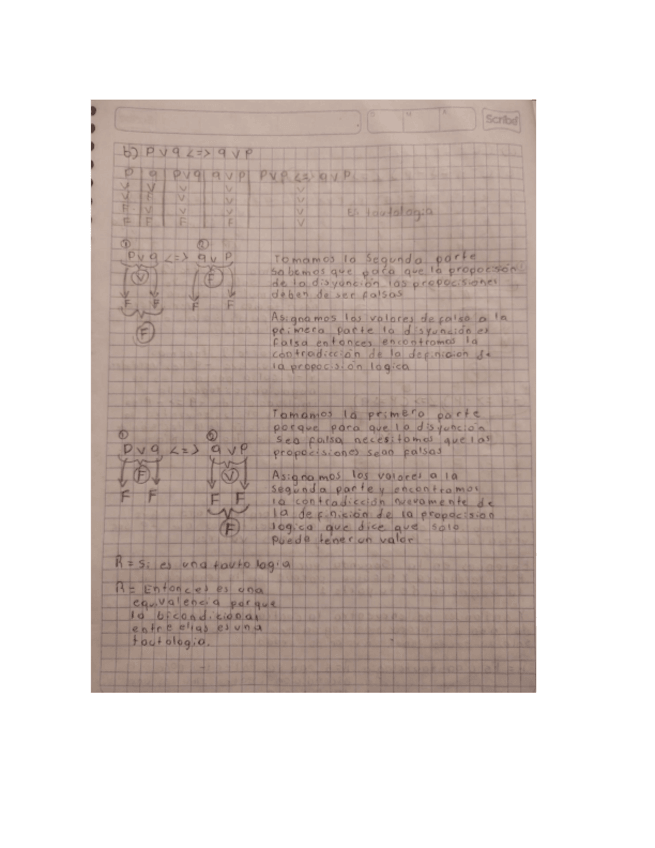 Scribe
b) p v q <=> q v p
p q p v q q v p p v q <=> q v p
V V V V V
V F V V V
F V V V V
F F F F V
Es tautologia
① ②
p v q <=> q v p
V F
F F F F
F
Tomamos la segunda parte
sabemos que para que la propocision
de la disyunción las propocisiones
deben de ser falsas
Asignamos los valores de falso a la
primera parte la disyunción es
falsa entonces encontramos la
contradicción de la definicion de
la propocisión logica
Tomamos la primera parte
porque para que la disyunción
sea falsa necesitamos que las
propocisiones sean falsas
① ②
p v q <=> q v p
F V
F F F F
F
Asignamos los valores a la
segunda parte y encontramos
la contradicción nuevamente de
la definición de la propocision
logica que dice que solo
puede tener un valor
R = Si es una tautologia
R = Entonces es una
equivalencia porque
la bicondicional
entre ellas es una
tautologia.